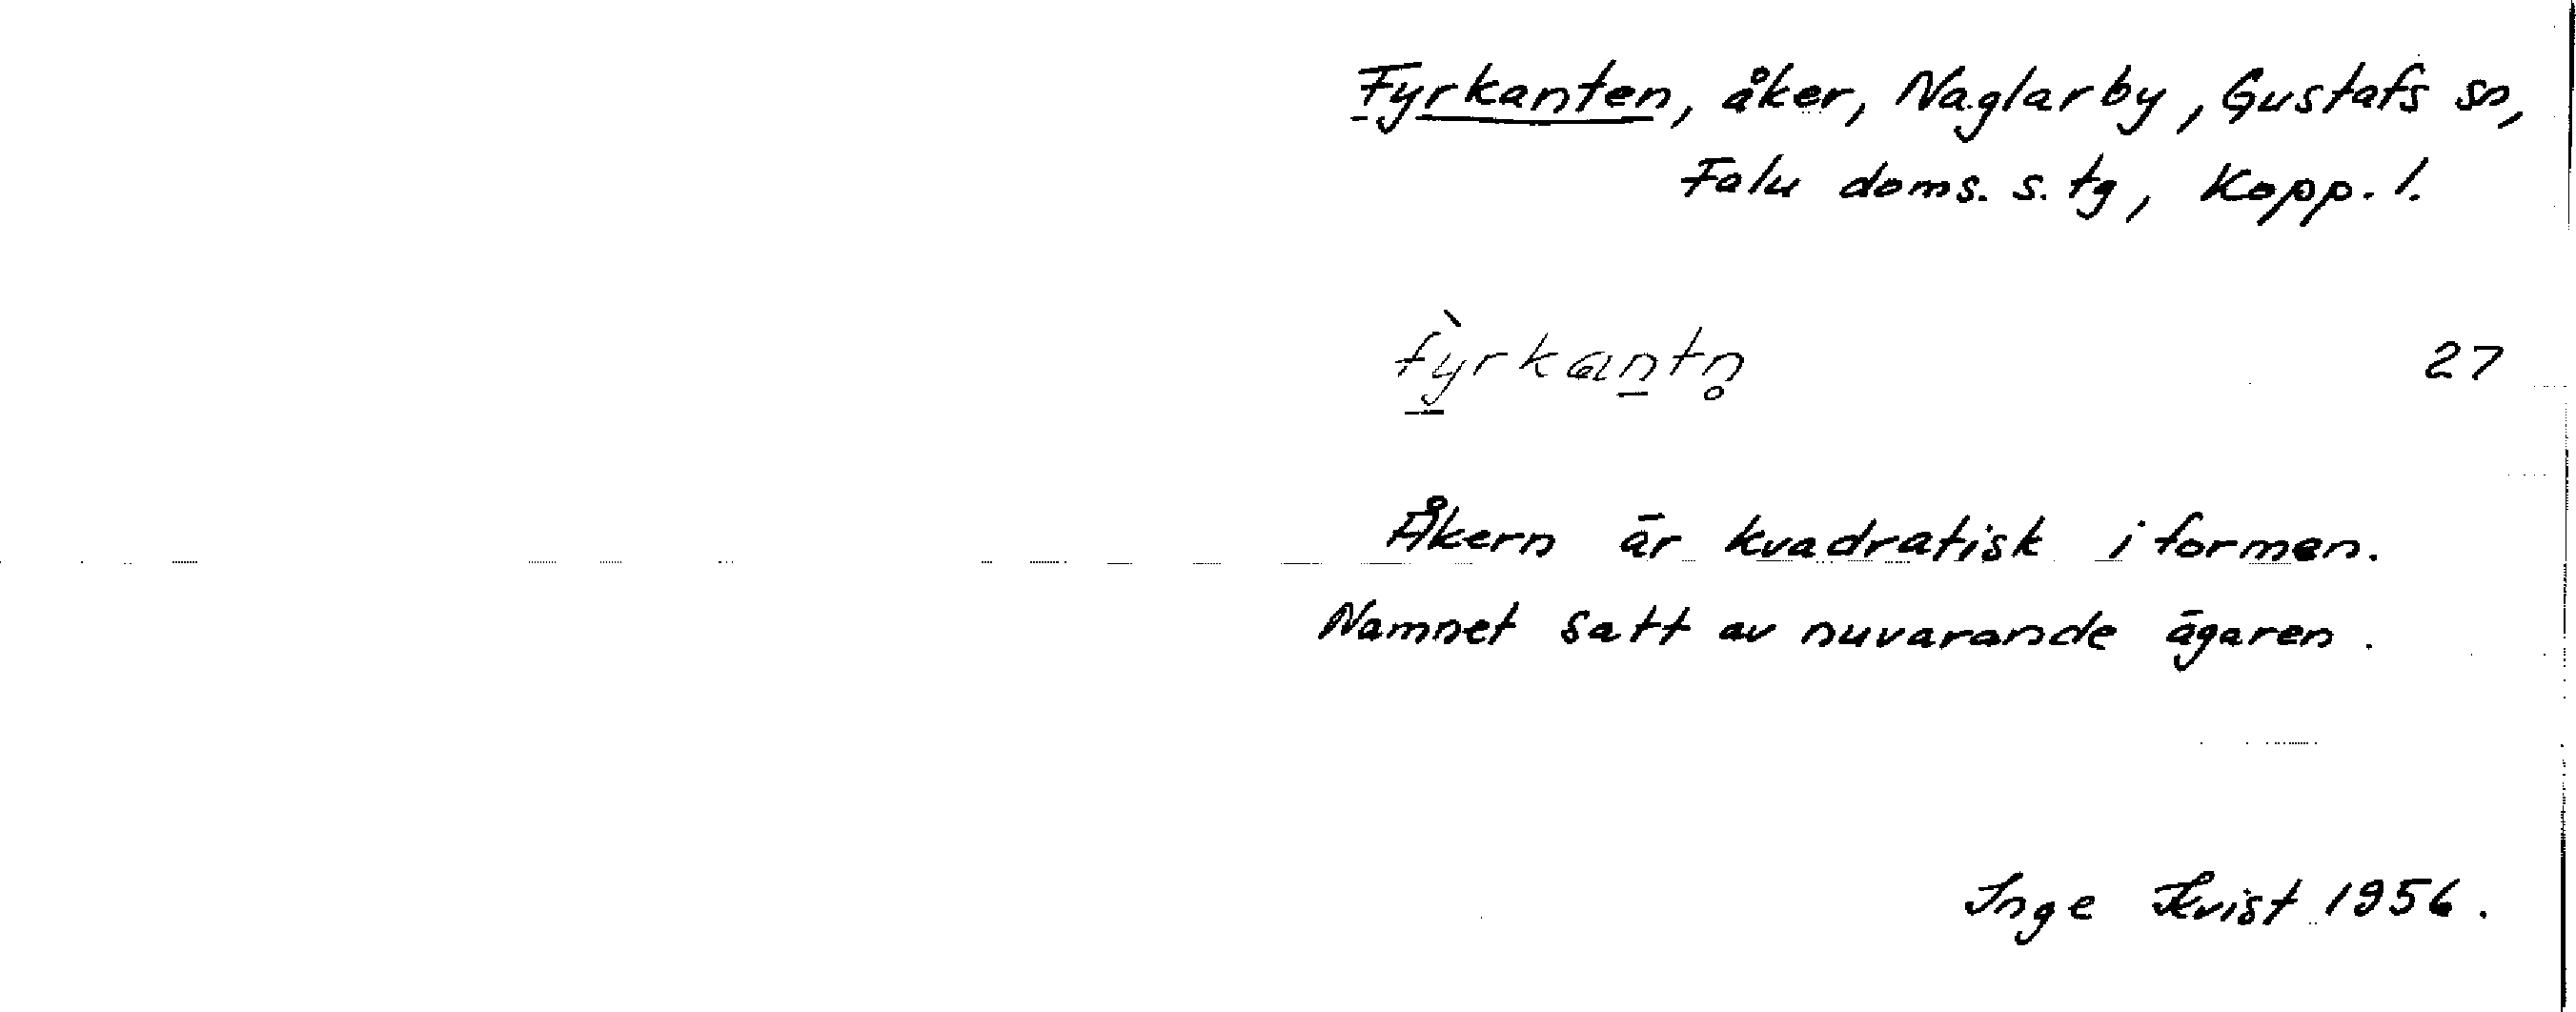 Fyrkanten, åker, Naglarby, Gustafs sn,
Falu doms. s. tg, Kopp. l.
fỳ̲rkan̲tn̥ 27
Åkern är kvadratisk i formen.
Namnet satt av nuvarande ägaren.
Inge Kvist 1956.